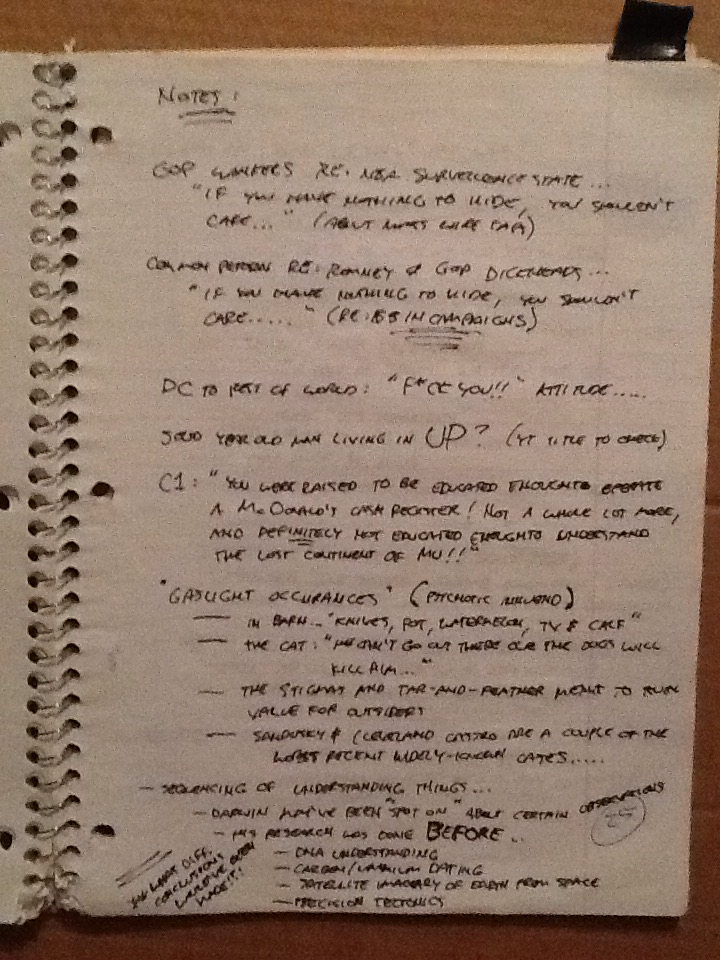 NOTES:
GOP WANKERS RE: NSA SURVEILLENCE STATE...
"IF YOU HAVE NOTHING TO HIDE, YOU SHOULDN'T
CARE..." (ABOUT MASS WIRE TAPS)
COMMON PERSON RE: ROMNEY & GOP DICKHEADS...
"IF YOU HAVE NOTHING TO HIDE, YOU SHOULDN'T
CARE....." (RE: IN CAMPAIGNS)
DC TO REST OF WORLD: "F*CK YOU!!" ATTITUDE.....
YEAR OLD MAN LIVING IN UP? (YT TITLE TO CHECK)
C1: "YOU WERE RAISED TO BE EDUCATED ENOUGH TO OPERATE
A McDONALD'S CASH REGISTER! NOT A WHOLE LOT MORE,
AND DEFINITELY NOT EDUCATED ENOUGH TO UNDERSTAND
THE LOST CONTINENT OF MU!!"
"GASLIGHT OCCURANCES" (PSYCHOTIC)
— IN BARN... "KNIVES, POT, WATERMELON, TV & CALF"
— THE CAT: "HE CAN'T GO OUT THERE THE DOGS WILL
KILL HIM..."
— THE STIGMAS AND TAR-AND-FEATHER MEANT TO RUIN
VALUE FOR OUTSIDERS
— SANDUSKY & CLEVELAND CASTRO ARE A COUPLE OF THE
WORST RECENT WIDELY-KNOWN CASES.....
— SEQUENCING OF UNDERSTANDING THINGS...
— DARWIN MAY'VE BEEN "SPOT ON" ABOUT CERTAIN OBSERVATIONS
— HIS RESEARCH WAS DONE BEFORE..
— DNA UNDERSTANDING
— CARBON/URANIUM DATING
— SATELLITE IMAGERY OF EARTH FROM SPACE
— PRECISION TECTONICS
DIFF.
CONCLUSIONS
BEEN
MADE!!!